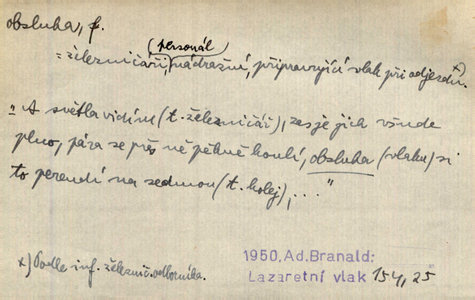 obsluha, f.
(personál
= železničáři, nádražní, připravující vlak při odjezdu. x)
"A světla vidím (t. železničář), zas je jich všude
plno, pára se přes ně pěkně koulí, obsluha (vlaku) si
to perendí na sedmou (t. kolej), ..."
x) Podle inf. železnič. odborníka.
1950, Ad. Branald:
Lazaretní vlak 154, 25